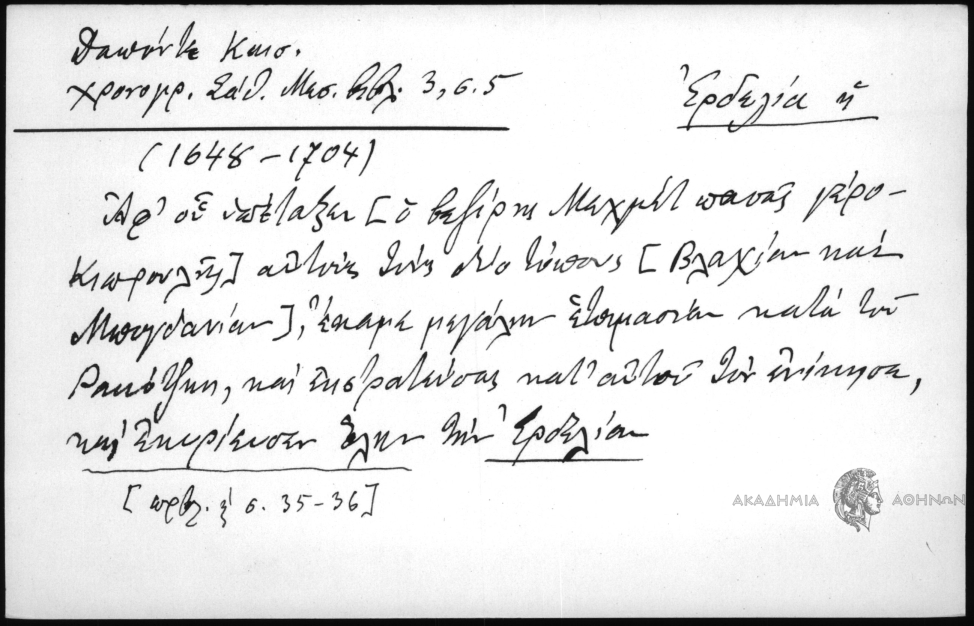 Δαπόντε Καισ.
χρονογρ. Σάθ. Μεσ. βιβλ. 3, σ. 5
Ἐρδελία ἡ
(1648-1704)
Ἀφ' οὗ ὑπέταξεν [ὁ βεζίρης Μεχμέτ πασᾶς γέρο-
Κιοπρουλῆς] αὐτούς τούς δύο τόπους [Βλαχίαν καί
Μπογδανίαν], ἔκαμε μεγάλην ἑτοιμασίαν κατά τοῦ
Ρακότζη, καί ἐκστρατεύσας κατ' αὐτοῦ τόν ἐνίκησε,
καί ἐκυρίευσεν ὅλην τήν Ἐρδελίαν
[πρβλ. σ. 35-36]
ΑΚΑΔΗΜΙΑ ΑΘΗΝΩΝ